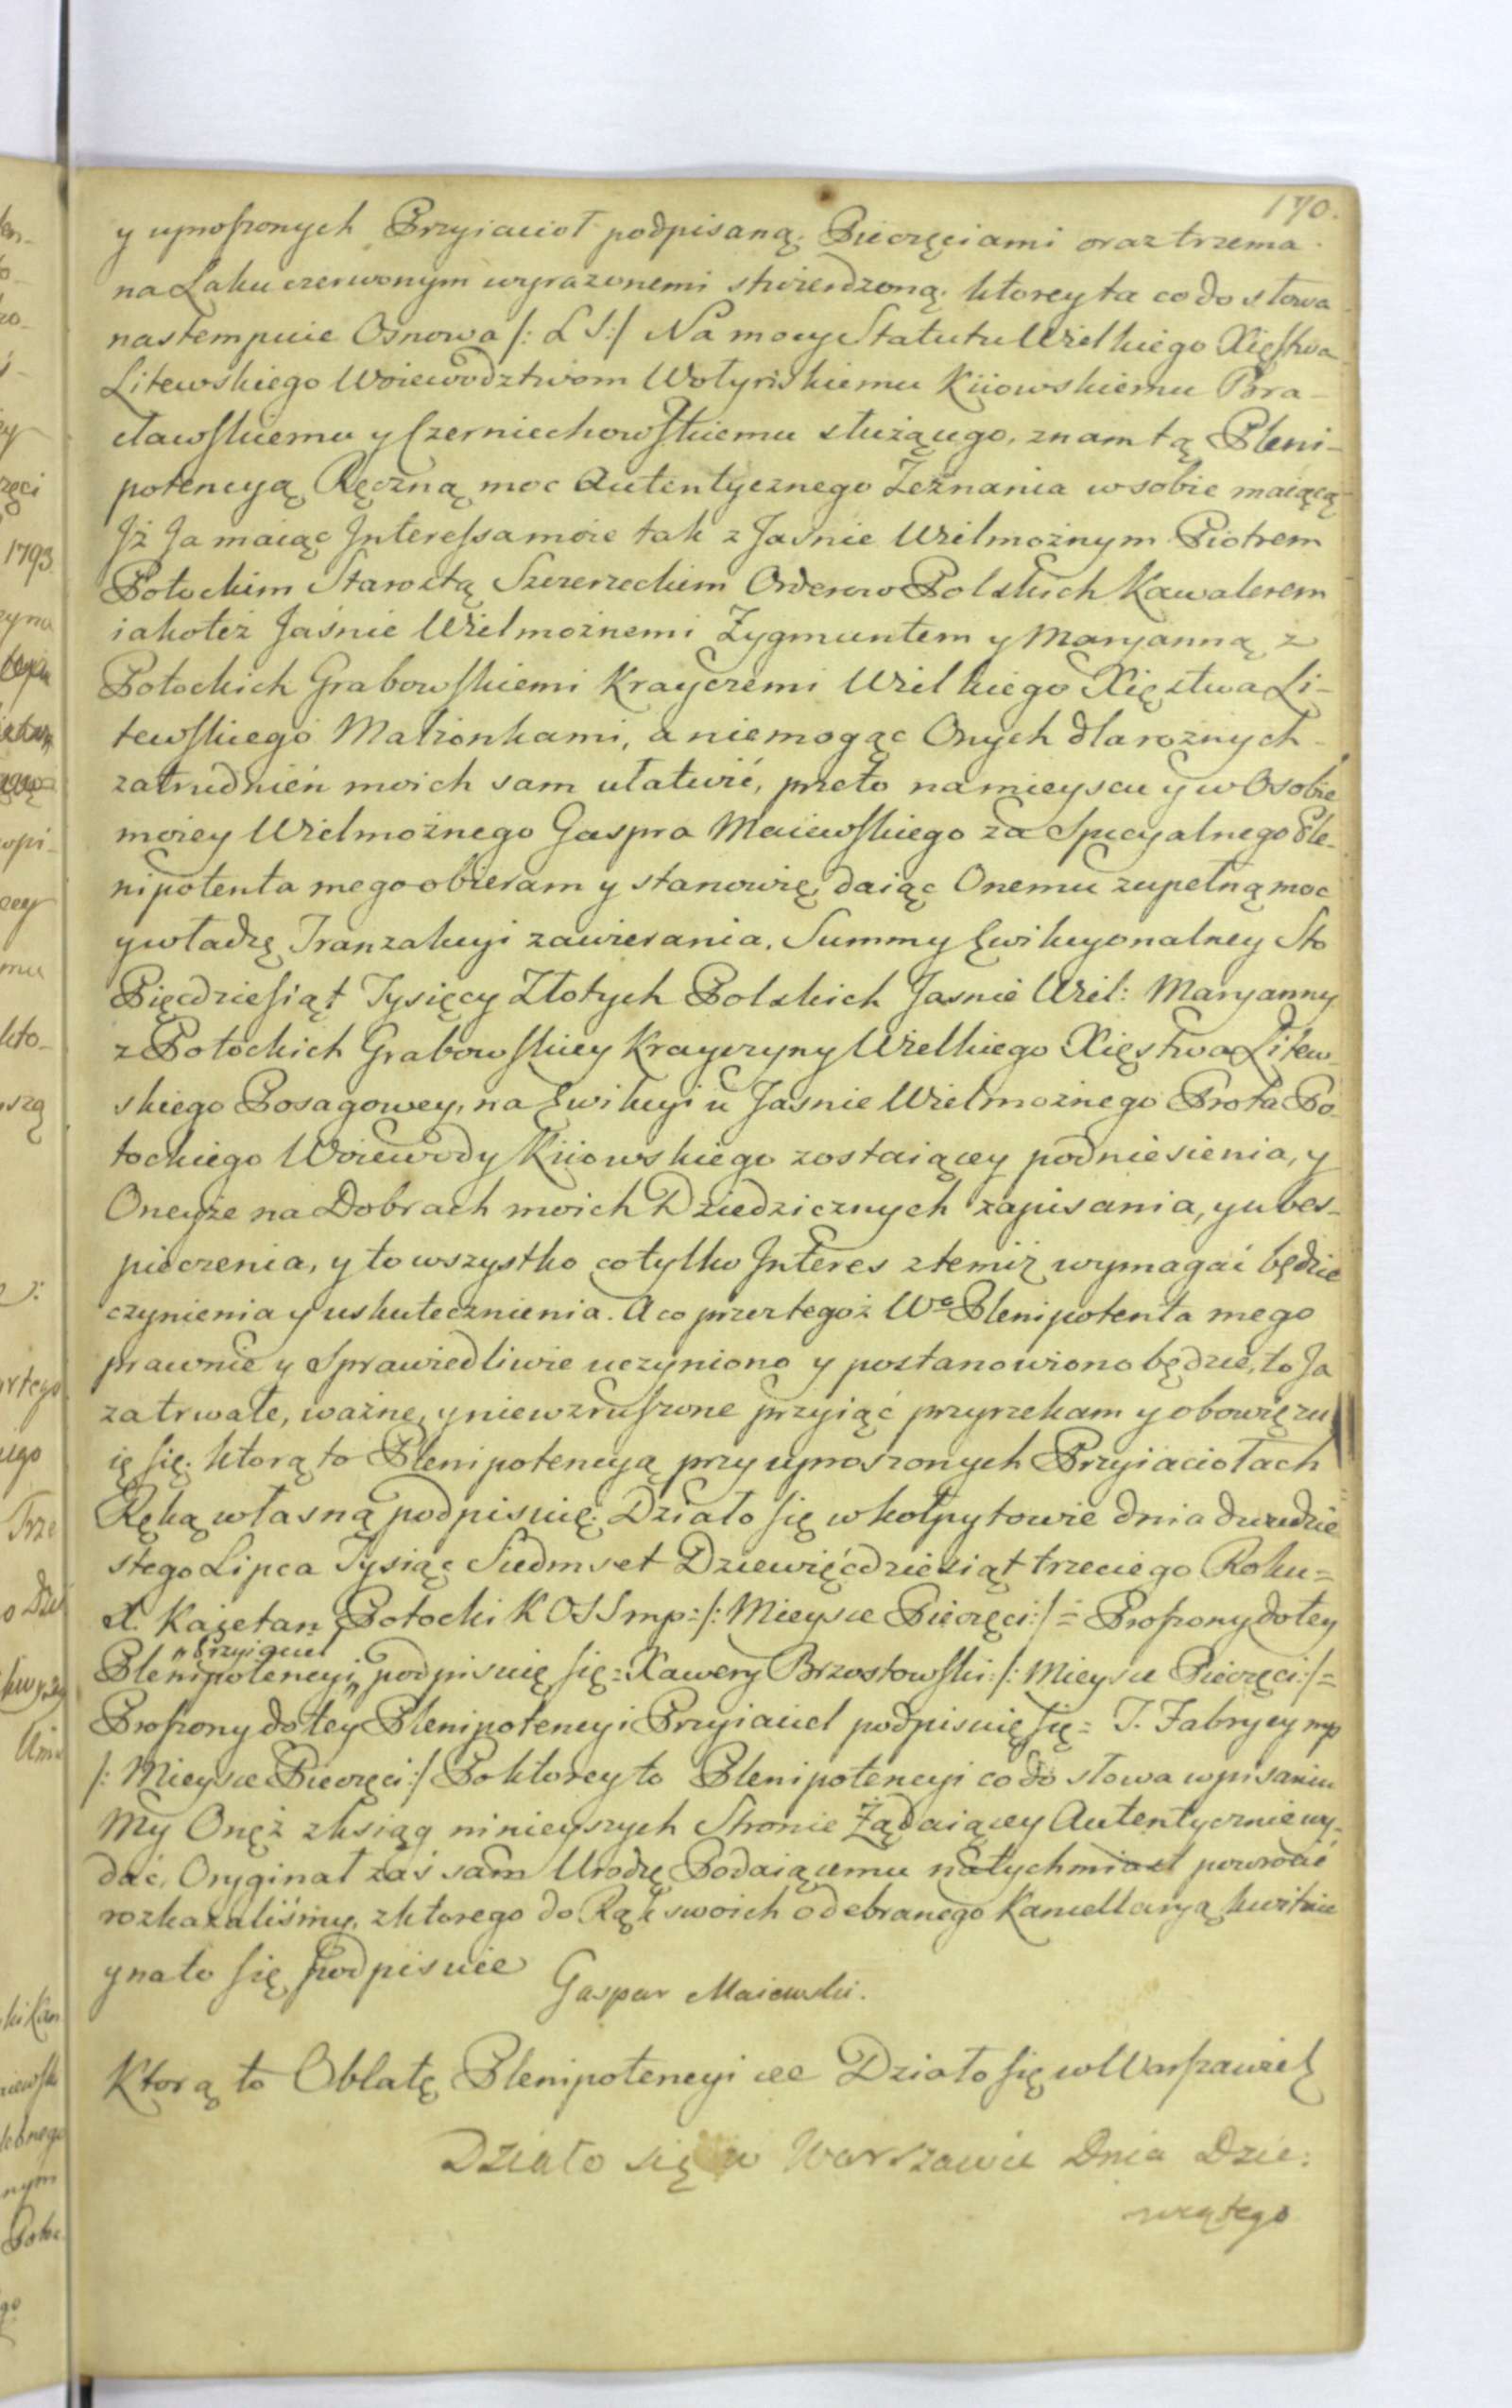 170.
y uproszonych Przyiacioł podpisaną, Pieczęciami oraz trzema
na Laku czerwonym wyrazonemi stwierdzoną, ktorey ta co do słowa
nastempuie Osnowa /: L S :/ Na mocy Statutu Wielkiego Xięstwa
Litewskiego Woiewodztwom Wołyńskiemu Kiiowskiemu Bra-
cławskiemu y Czerniechowskiemu służącego, znam tą Pleni-
potencyą Ręczną moc Autentycznego Zeznania w sobie maiącą
Jż Ja maiąc Interessa moie tak z Jaśnie Wielmożnym Piotrem
Potockim Starostą Szczerzeckim Orderow Polskich Kawalerem
iakoteż Jaśnie Wielmożnemi Zygmuntem y Maryanną z
Potockich Grabowskiemi Krayczemi Wielkiego Xięstwa Li-
tewskiego Małżonkami, a niemogąc Onych dla rożnych
zatrudnień moich sam ułatwić, przeto na mieyscu y w Osobie
moiey Wielmożnego Gaspra Maiewskiego za Specyalnego Ple-
nipotenta mego obieram y stanowię, daiąc Onemu zupełną moc
y władzę Tranzakcyi zawierania, Summy Ewikcyonalney Sto
Pięcdziesiąt Tysięcy Złotych Polskich Jasnie Wiel: Maryanny
z Potockich Grabowskiey Krayczyny Wielkiego Xięstwa Litew-
skiego Posagowey, na Ewikcyi u Jasnie Wielmożnego Prota Po-
tockiego Woiewody Kiiowskiego zostaiącey podniesienia, y
Oneyże na Dobrach moich Dziedzicznych zapisania, y ubes-
pieczenia, y to wszystko co tylko Interes z temiż wymagać będzie
czynienia y uskutecznienia. A co przez tegoż Wo Plenipotenta mego
prawnie y sprawiedliwie uczyniono y postanowiono będzie, to Ja
za trwałe, ważne, y niewzruszone przyiąć przyrzekam y obowięzu
ię się. ktorą to Plenipotencyą przy uproszonych Przyiaciołach
Ręką własną podpisuię. Działo się w kołpytowie dnia dwudzie
stego Lipca Tysiąc Siedmset Dziewięćdziesiąt trzeciego Roku =
X. Kajetan Potocki K O S S mp: /: Mieysce Pieczęci :/ = Proszony do tey
"Przyiaciel
Plenipotencyi" podpisuię się = Xawery Brzostowski: /: Mieysce Pieczęci :/ =
Proszony do tey Plenipotencyi Przyiaciel podpisuię się = J. Fabrycy mp
/: Mieysce Pieczęci :/ Po ktorey to Plenipotencyi co do słowa wpisaniu
My Onęż z ksiąg ninieyszych Stronie Żądaiącey Autentycznie wy-
dać, Oryginał zaś sam Urodz. Podaiącemu natychmiast powrocić
rozkazaliśmy, z ktorego do Rąk swoich odebranego Kancellaryą kwituie
y na to się podpisuie
Gaspar Maiewski.
Ktorą to Oblatę Plenipotencyi &c Działo się w Warszawie
Działo się w Warszawie Dnia Dzie:
wiątego